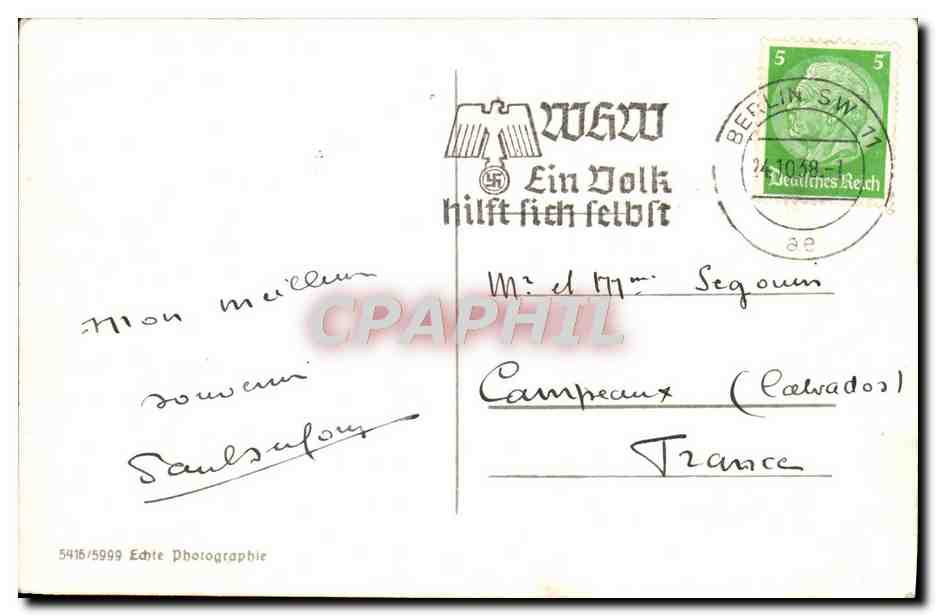 5 5
Deutsches Reich
BERLIN SW 11
24.10.38.-1
ae
WHW
Ein Volk
hilft sich selbst
Mr et Mme Segouin
Campeaux (Calvados)
France
Mon meilleur
souvenir
5416/5999 Echte Photographie
CPAPHIL